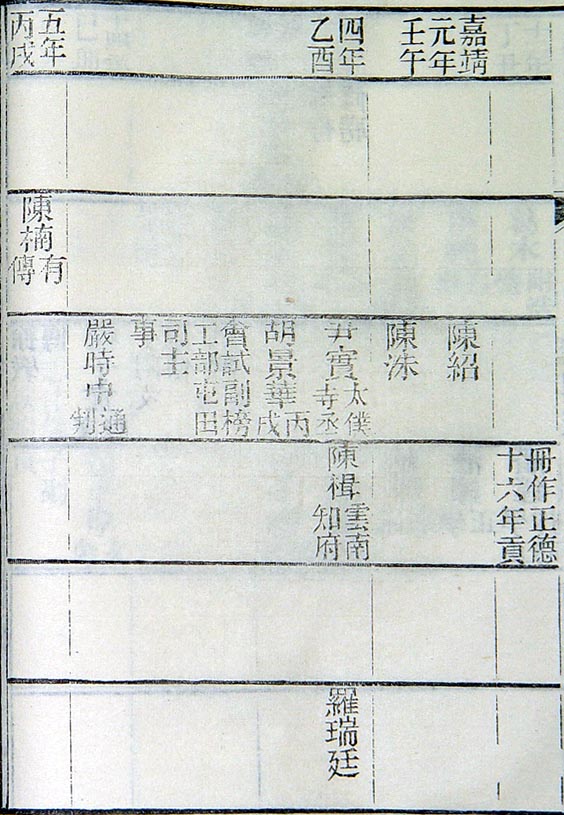 嘉靖
元年
壬午
四年
乙酉
五年
丙戌
陳楠有
傳
陳紹
陳洙
尹實太僕
寺丞
胡景華丙
戌
會試副榜
工部屯田
司主
事
嚴時中通
判
冊作正德
十六年貢
陳楫雲南
知府
羅瑞廷